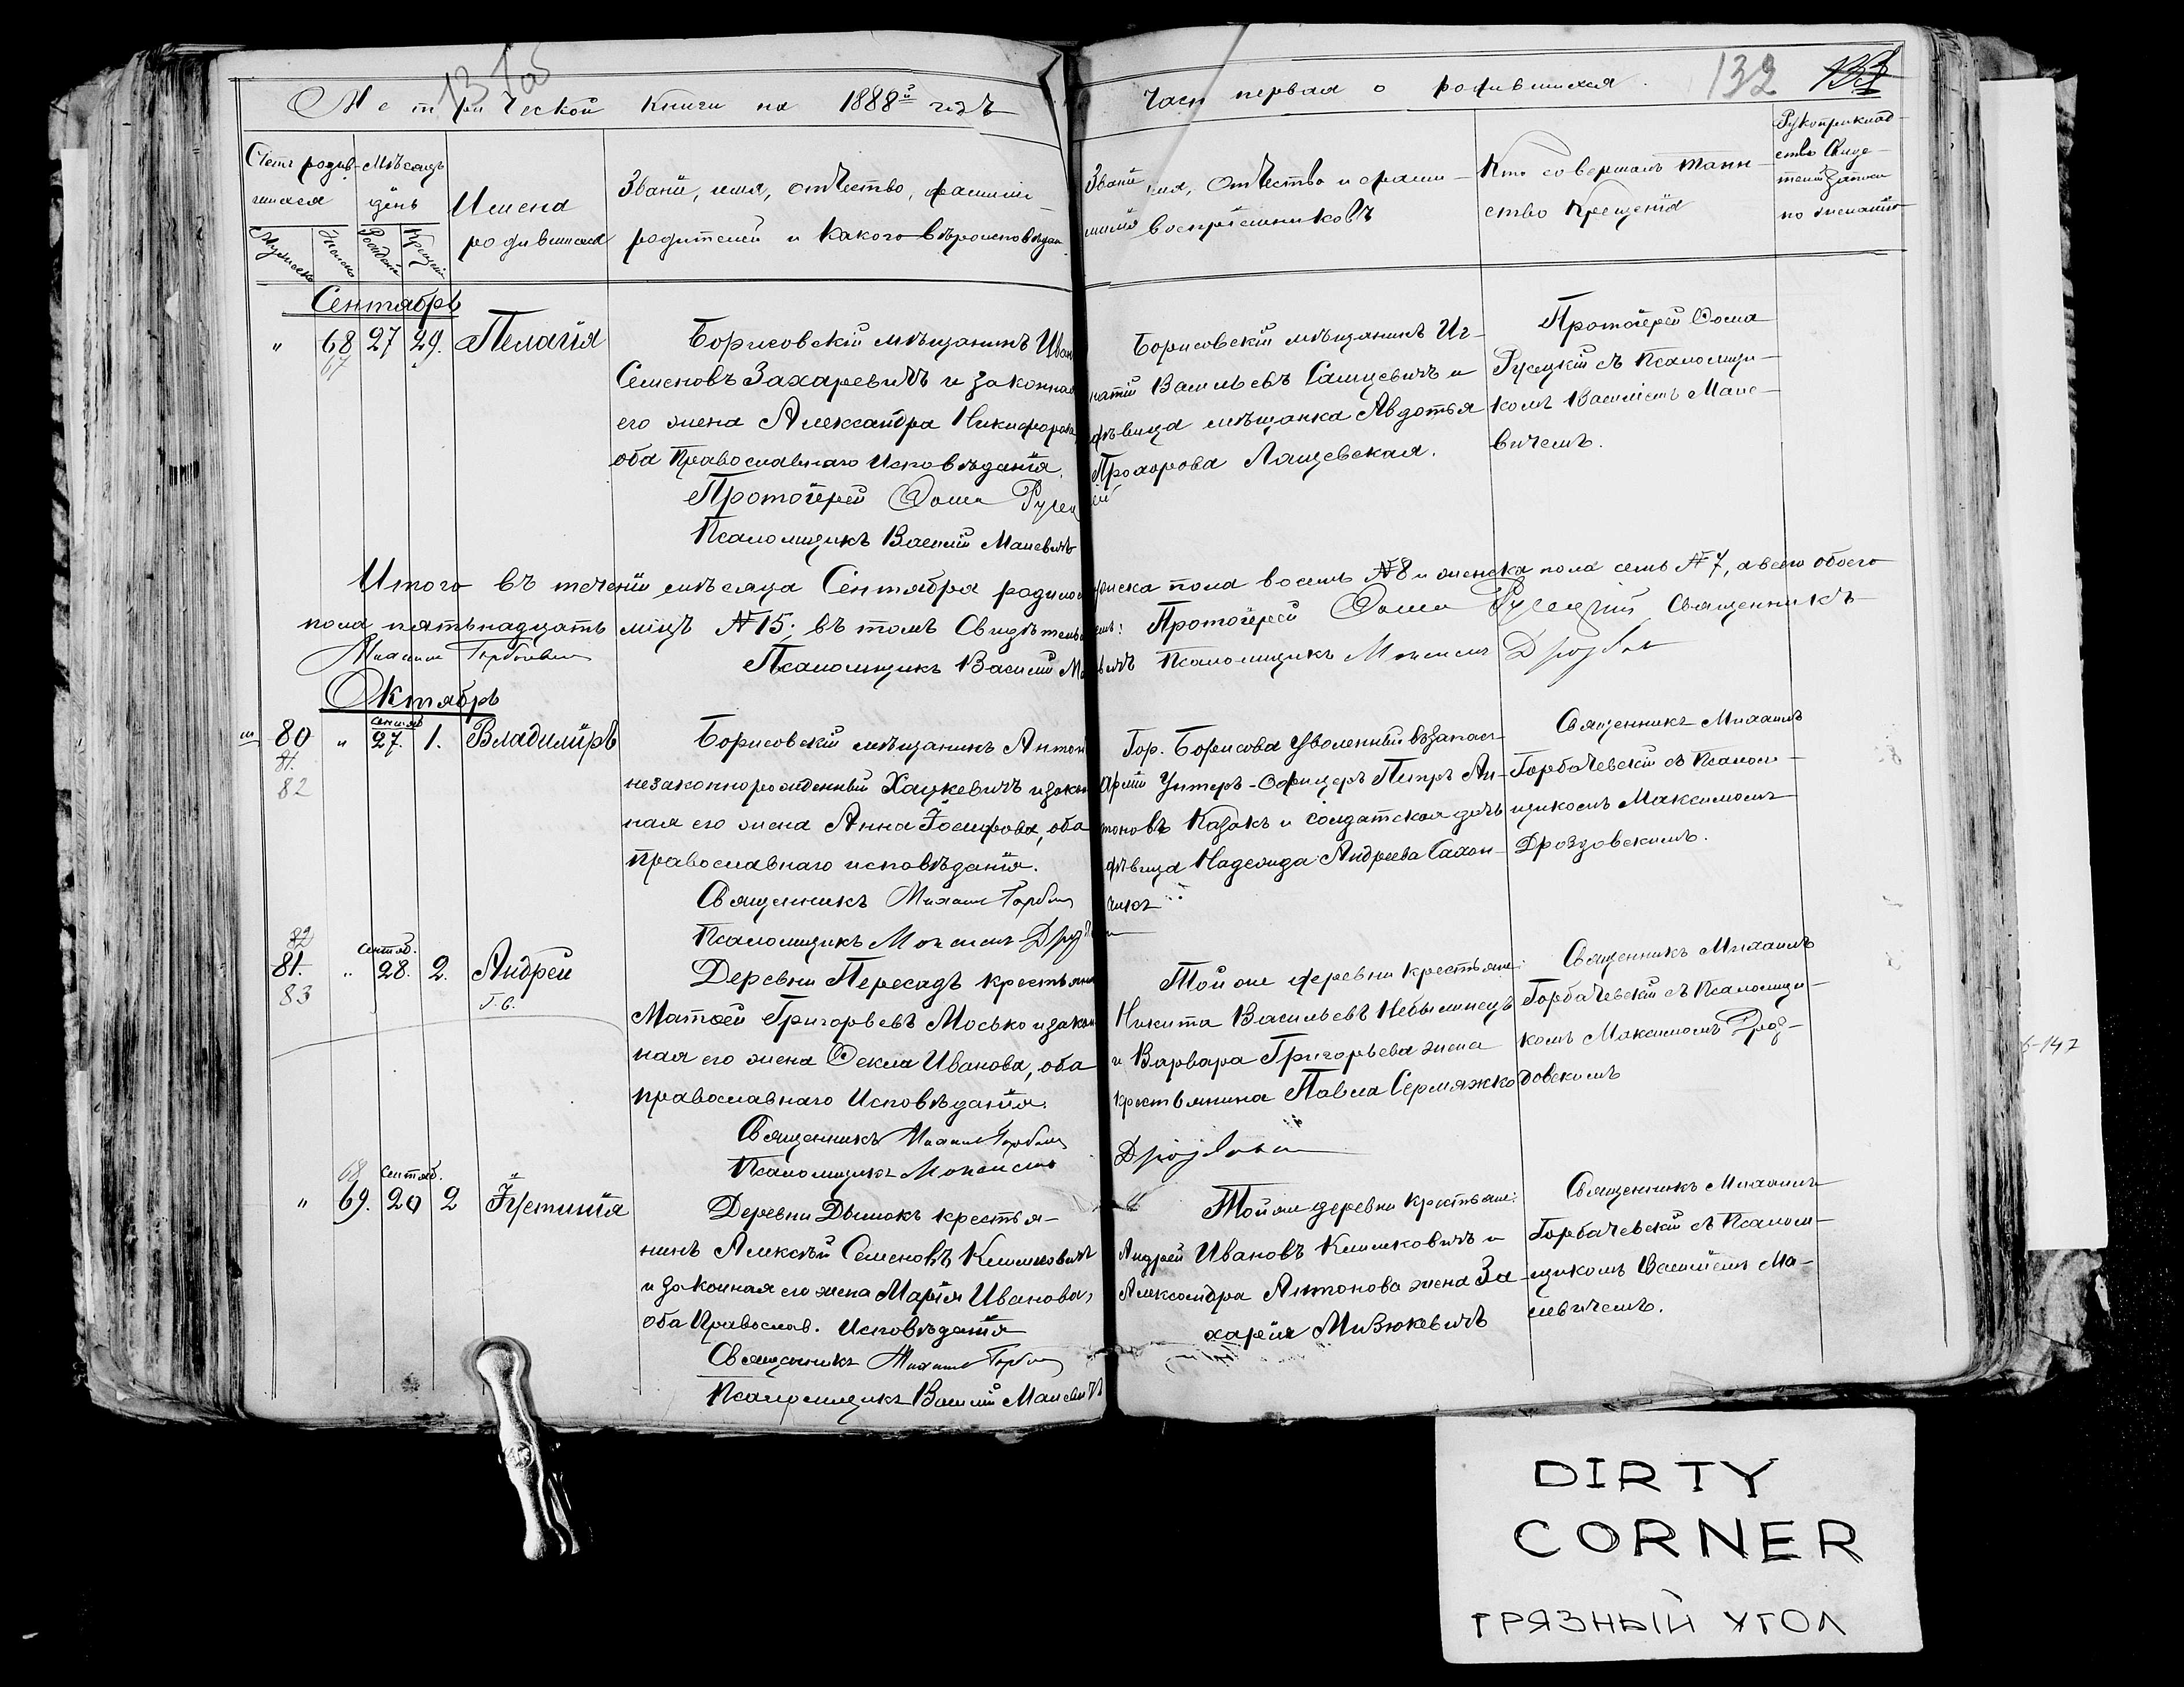 Метрической книги на 1888й годъ
Часть первая о родившихся.
132
Счетъ родив-
шихся
Мѣсяцъ
день
Мужеска
Женска
Рожденія
Крещенія
Имена
родившихся
Званіе, имя, отчество, фамилія
родителей и какого вѣроисповѣдан.
Званіе, имя, отчество и фами-
лія воспріемниковъ
Кто совершалъ таин-
ство крещенія
Рукоприклад-
ство свидѣ-
телей записи
по желанію
Сентябрь
" 68 27 29. Пелагія
67
Борисовскій мѣщанинъ Иван
Семеновъ Захаревичъ и законная
его жена Александра Никифорова
оба Православнаго Исповѣданія.
Протоіерей Ѳома Русец
Псаломщикъ Василій Малевичъ
Борисовскій мѣщанинъ Иг-
натій Васильевъ и
дѣвица мѣщанка Авдотья
Прохорова Лащевская.
ій
Протоіерей Ѳома
Русецкій съ Псаломщи-
комъ Василіемъ Мале-
вичемъ.
Итого въ теченіи мѣсяца Сентября родилось мужеска пола восемь №8 и женска пола семь №7, а всего обоего
пола пятьнадцать лицъ №15; въ томъ Свидѣтельствуемъ: Протоіерей Ѳома Русецкій Священникъ
Михаилъ Горбачевскій Псаломщикъ Василій Малевичъ Псаломщикъ Максимъ Дроздов
Октябрь
80 " Сентяб 27. 1. Владиміръ
81.
82
Борисовскій мѣщанинъ Антон
незаконнорожденный Хацкевичъ и закон
ная его жена Анна Іосифова, оба
православнаго исповѣданія.
Священникъ Михаилъ Горбач
Псаломщикъ Максимъ Дрозд
Гор. Борисова Уволенный въ запасъ
Арміи Унтеръ-Офицеръ Петръ Ан-
тоновъ Казакъ и солдатская дочь
дѣвица Надежда Андреева Сахон-
чикъ
Священникъ Михаилъ
Горбачевскій съ Псалом-
щикомъ Максимомъ
Дроздовскимъ.
82
81. " Сентяб. 28. 2. Андрей
83
Г. С.
Деревни Пересадъ крестьянин
Матѳей Григорьевъ Мосько и закон
ная его жена Ѳекла Иванова, оба
православнаго Исповѣданія.
Священникъ Михаилъ Горбач
Псаломщикъ Максимъ
Той же деревни крестьяне:
Никита Васильевъ Небылицъ
и Варвара Григорьева жена
крестьянина Павла Сермяжко
Дроздовскій
Священникъ Михаилъ
Горбачевскій съ Псаломщи-
комъ Максимомъ Дроз-
довскимъ
6-147
68
" 69. Сентяб. 20 2 Іустинія
Деревни Дымокъ крестья-
нинъ Алексѣй Семеновъ Климковичъ
и законная его жена Марія Иванова,
оба Православ. Исповѣданія
Священникъ Михаилъ Горбач
Псаломщикъ Василій Малевичъ
Той же деревни крестьяне:
Андрей Ивановъ Климковичъ и
Александра Антонова жена За-
харія Мизюкевичъ
Священникъ Михаилъ
Горбачевскій съ Псалом-
щикомъ Василіемъ Ма-
левичемъ.
DIRTY
CORNER
ГРЯЗНЫЙ УГОЛ